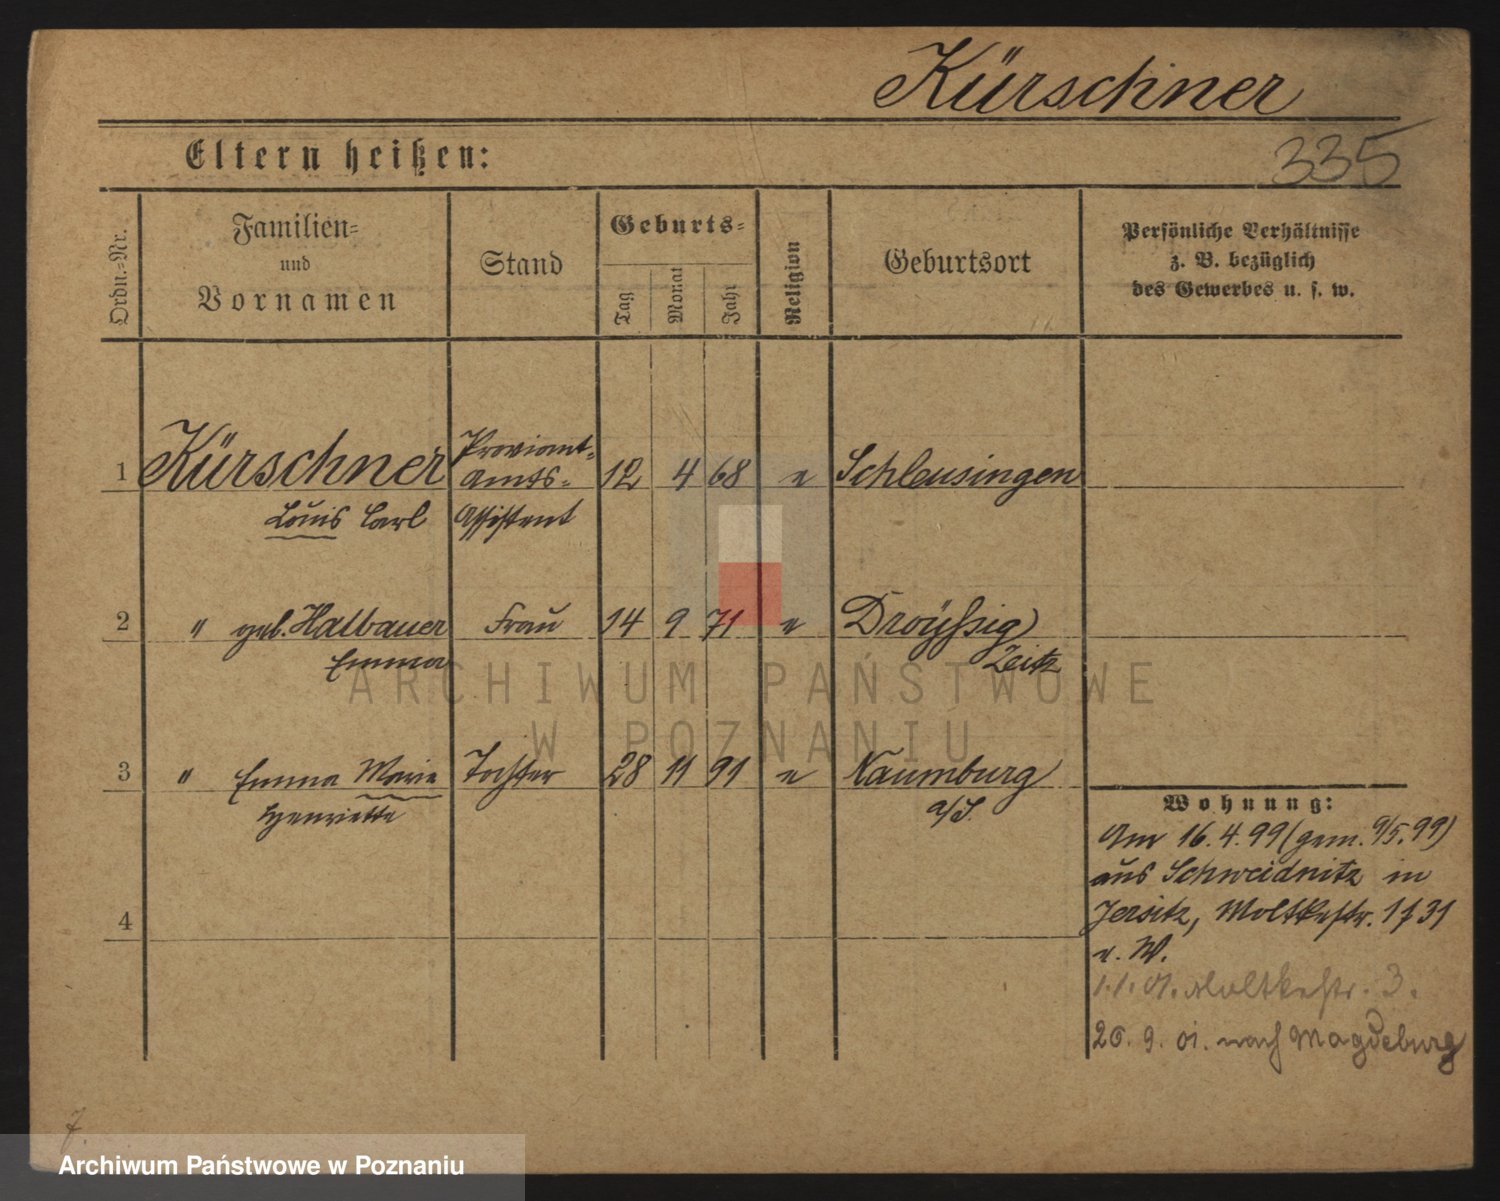 Kürschner
335
Eltern heißen:
Ordn.-Nr.
Familien-
und
Vornamen
Stand
Geburts-
Tag
Monat
Jahr
Religion
Geburtsort
Persönliche Verhältnisse
z. B. bezüglich
des Gewerbes u. s. w.
1 Kürschner Proviant- 12 4 68 e Schleusingen
Amts-
Louis Carl Assistent
2 " geb. Halbauer Frau 14 9 71 e Droyßig
Emma Zeitz
3 " Emma Marie Tochter 28 11 91 e Naumburg
Henriette a/S.
4
Wohnung:
Am 16.4.99 (gem. 9/5.99)
aus Schweidnitz in
Jersitz, Moltkestr. 1 f 31
e. W.
1.1.01. Moltkestr. 3.
26. 9. 01. nach Magdeburg
7.
ARCHIWUM PAŃSTWOWE
W POZNANIU
Archiwum Państwowe w Poznaniu